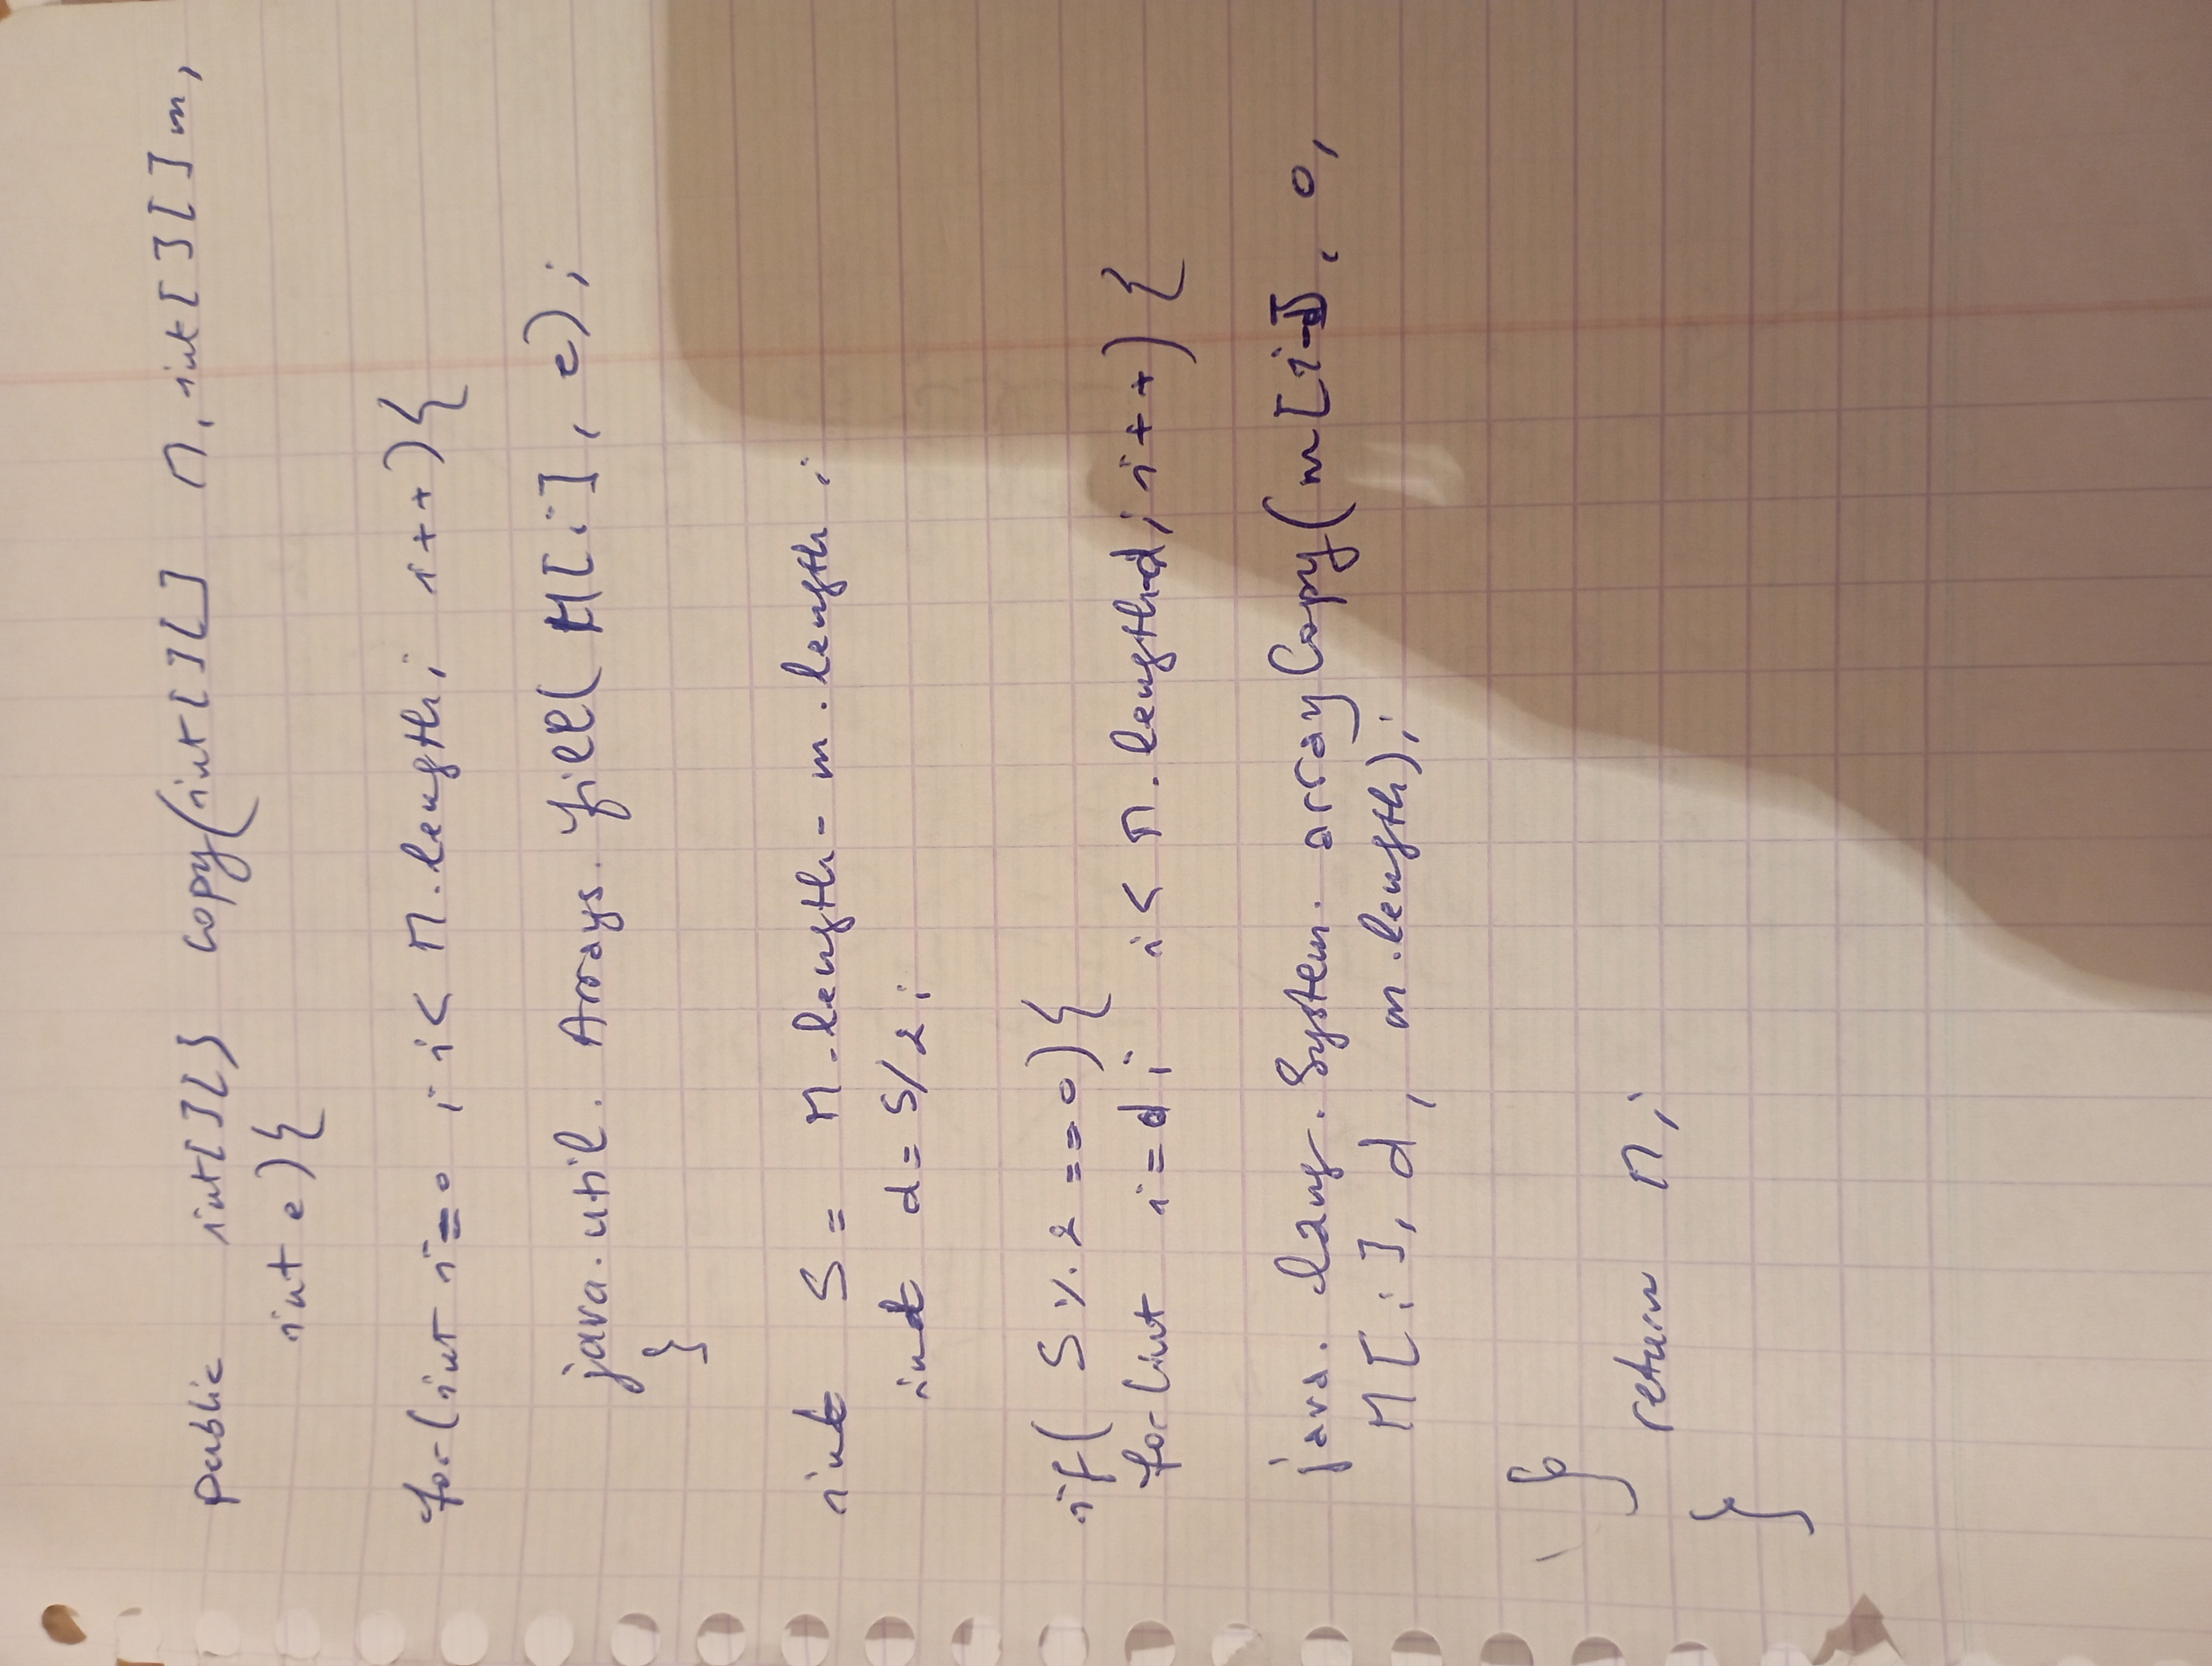 public int[][] copy(int[][] M, int[][] m,
int e){
for(int i=0 ; i< M.length; i++){
java.util. Arrays. fill( M[i], e);
}
int S= M.length- m.length ;
int d= S/2;
if( S % 2 ==0){
for(int i=d; i< M.length-d; i++){
java. lang. System. arrayCopy(m[i-d], 0,
M[i], d, m.length);
}
return M;
}